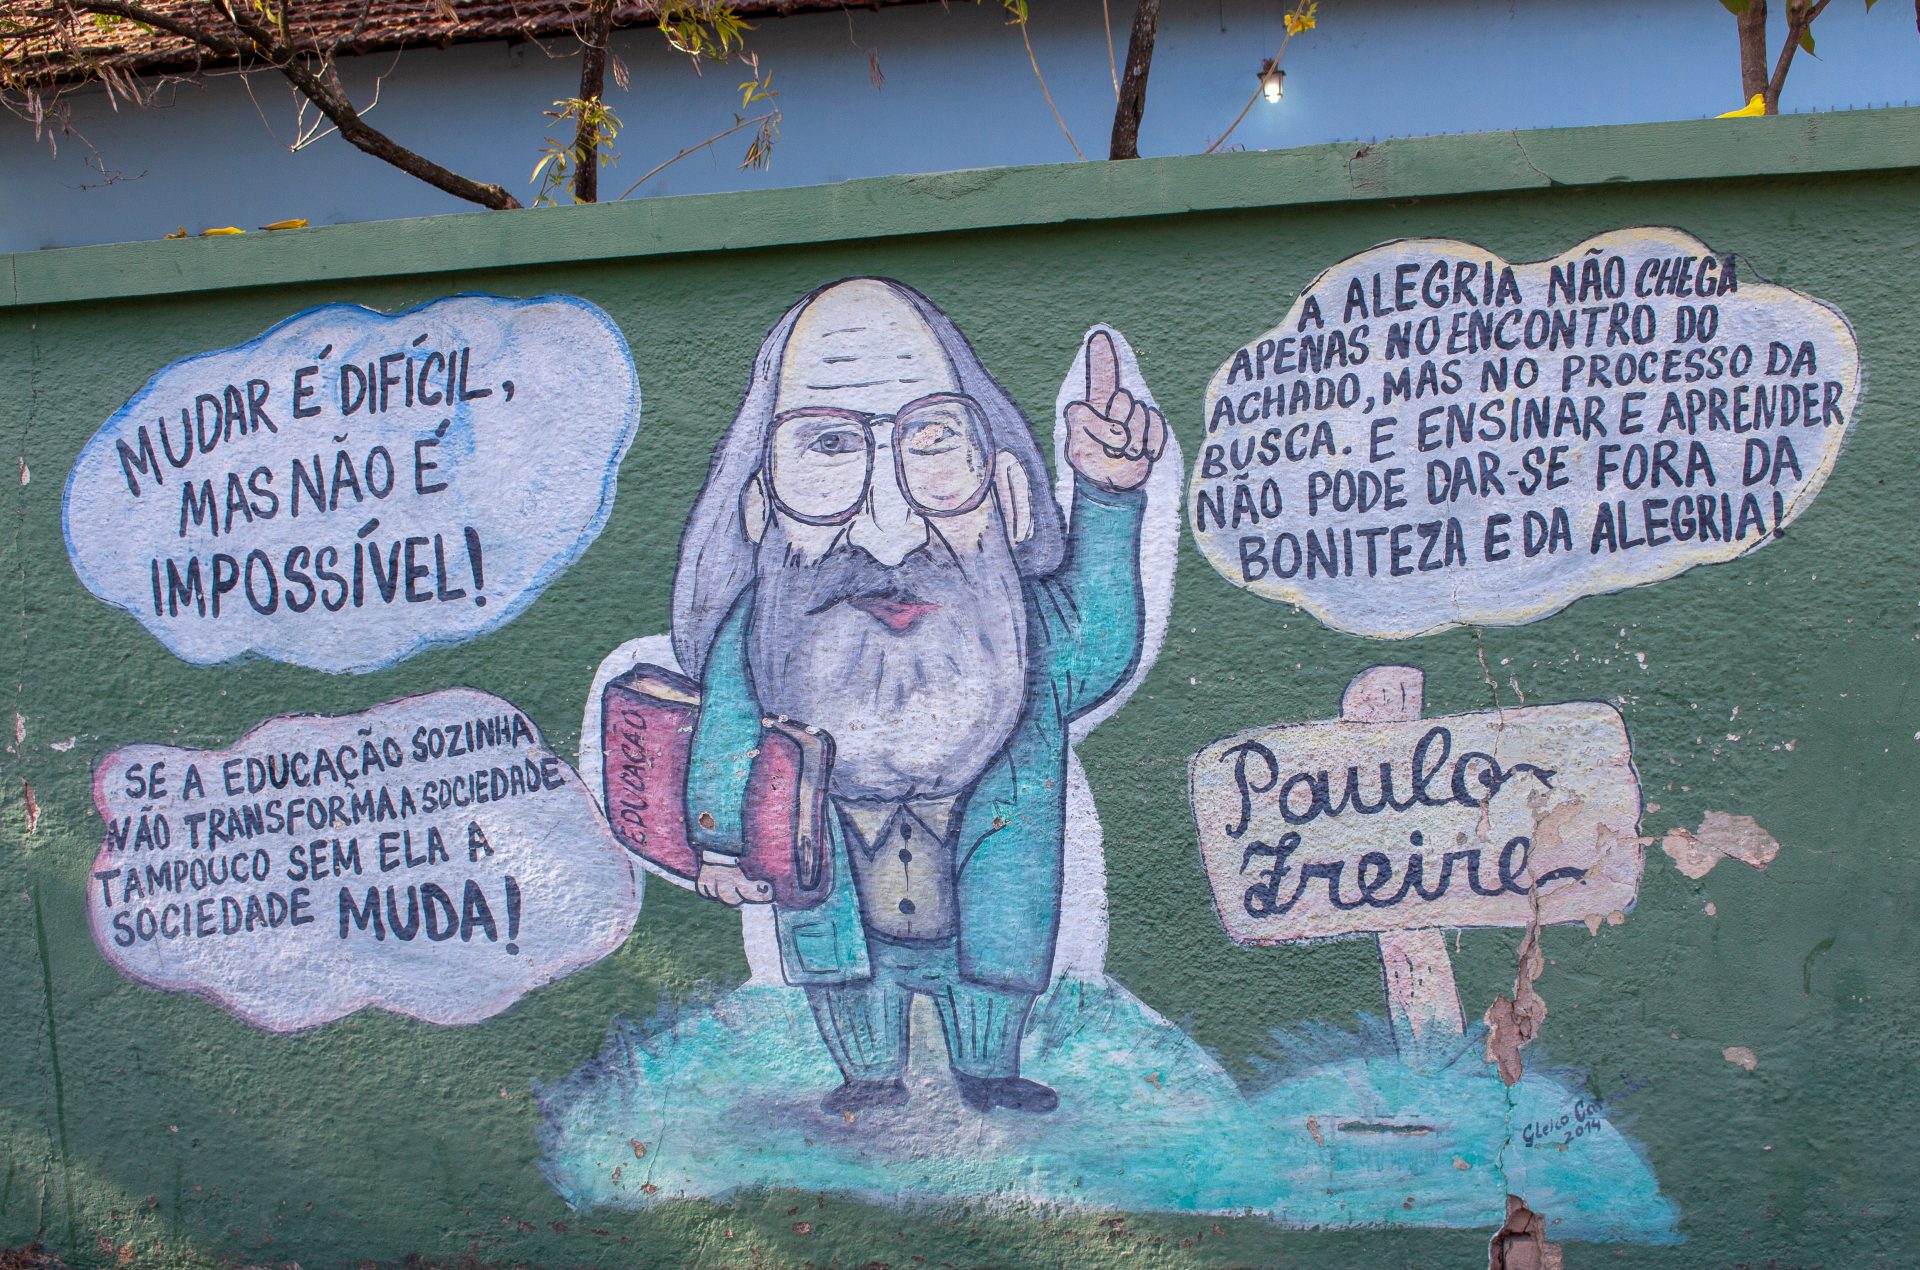 MUDAR É DIFÍCIL,
MAS NÃO É
IMPOSSÍVEL!
SE A EDUCAÇÃO SOZINHA
NÃO TRANSFORMA A SOCIEDADE
TAMPOUCO SEM ELA A
SOCIEDADE MUDA!
EDUCAÇÃO
A ALEGRIA NÃO CHEGA
APENAS NO ENCONTRO DO
ACHADO, MAS NO PROCESSO DA
BUSCA. E ENSINAR E APRENDER
NÃO PODE DAR-SE FORA DA
BONITEZA E DA ALEGRIA!
Paulo
Freire
2014